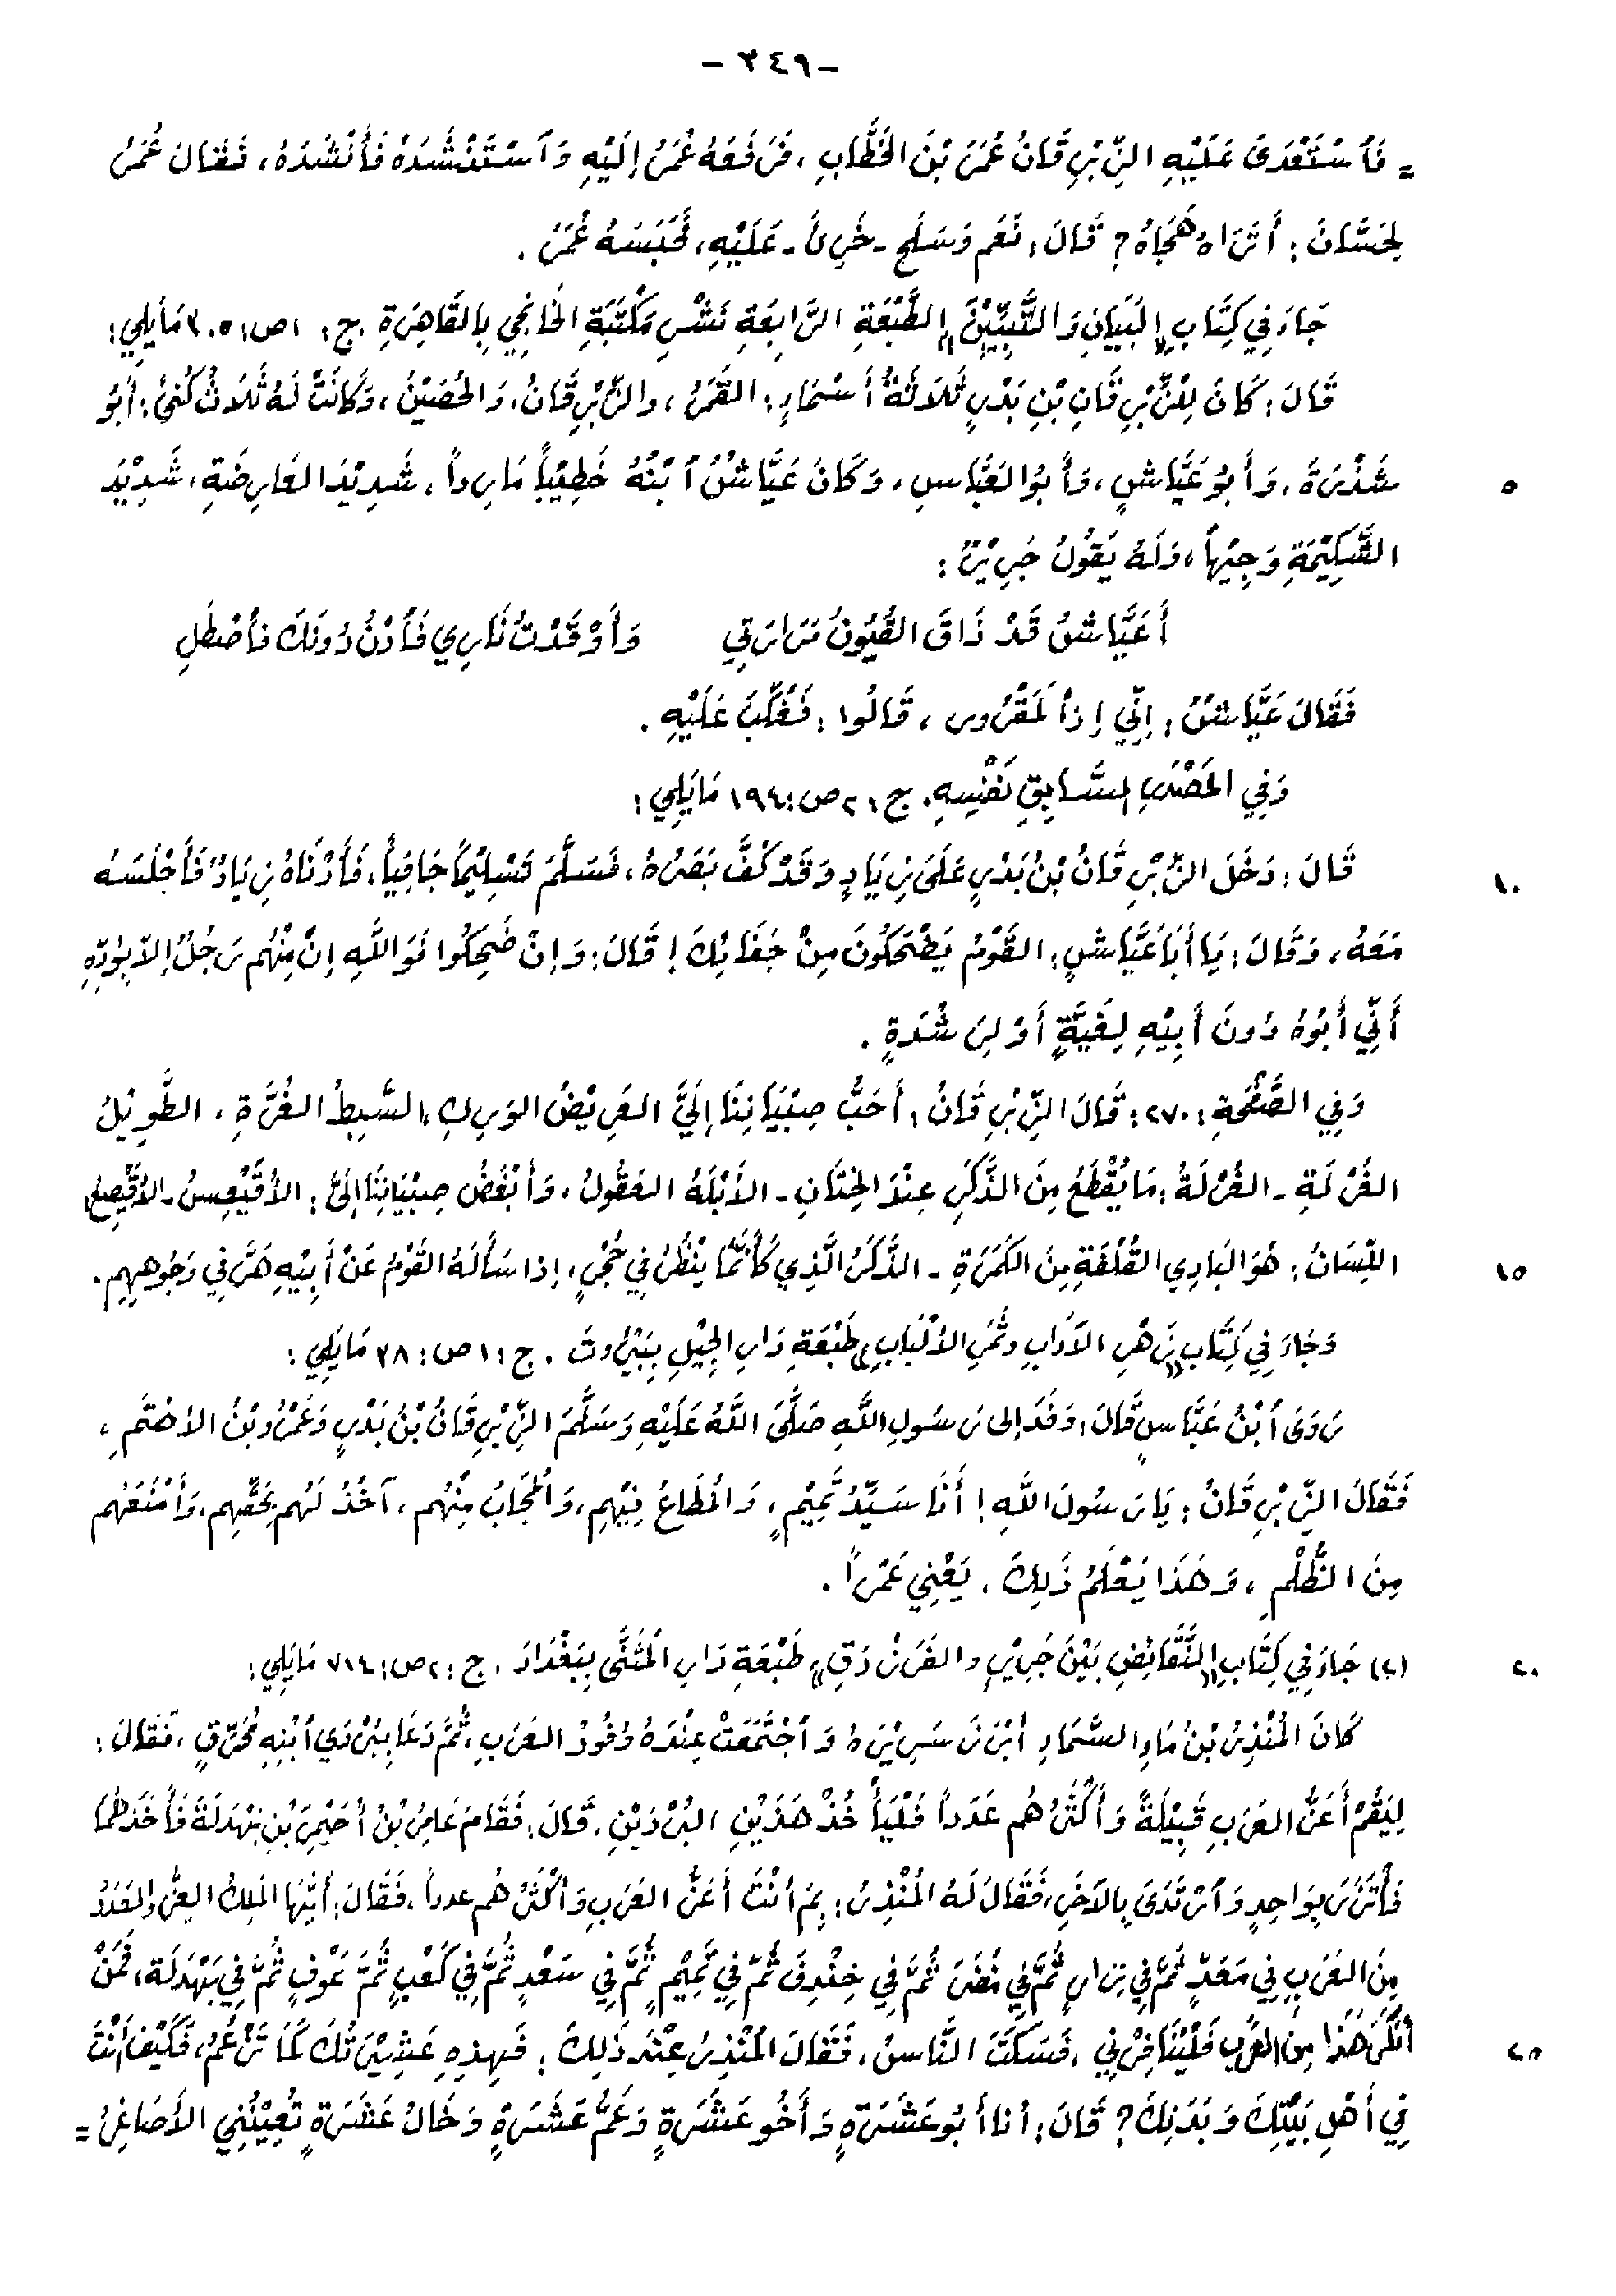 - ٣٤٩ -
= فَٱسْتَعْدَىٰ عَلَيْهِ الزِّبْرِقَانُ عُمَرَ بْنَ الخَطَّابِ ، فَرَفَعَهُ عُمَرُ إِلَيْهِ وَٱسْتَنْشَدَهُ فَأَنْشَدَهُ ، فَقَالَ عُمَرُ
لِحَسَّانَ : أَتَرَاهُ هَجَاهُ ؟ قَالَ : نَعَم وَسَلَحَ - خَرِئَ - عَلَيْهِ ، فَحَبَسَهُ عُمَرُ .
جَاءَ فِي كِتَابِ « البَيَانِ وَالتَّبِيِيْنَ » الطَّبْعَةِ الرَّابِعَةِ نَشْرِ مَكْتَبَةِ الخَانْجِي بِالقَاهِرَةِ . ج : ١ ص : ٣٠٥ مَايَلِي :
قَالَ : كَانَ لِلزِّبْرِقَانِ بْنِ بَدْرٍ ثَلَاثَةُ أَسْمَاءٍ : القَمَرُ ، والزِّبْرِقَانُ ، وَالحُصَيْنُ ، وَكَانَتْ لَهُ ثَلَاثُ كُنَىً : أَبُو
٥ شَذْرَةَ ، وَأَبُو عَيَّاشٍ ، وَأَبُوالعَبَّاسِ ، وَكَانَ عَيَّاشٌ ٱبْنُهُ خَطِيْبًا مَارِداً ، شَدِيْدَ العَارِضَةِ ، شَدِيْدَ
الشَّكِيْمَةِ وَجِيْهاً ، وَلَهُ يَقُولُ جَرِيْرٌ :
أَعَيَّاشُ قَدْ ذَاقَ القُيُونُ مَرَارَتِي وَأَوْقَدْتُ نَارِي فَٱدْنُ دُونَكَ فَٱصْطَلِ
فَقَالَ عَيَّاشٌ : إِنِّي إِذاً لَمَقْرُور ، قَالُوا : فَغَلَّبَ عَلَيْهِ .
وَفِي المَصْدَرِ السَّابِقِ نَفْسِهِ . ج : ٢ ص : ١٩٤ مَايَلِي :
١٠ قَالَ : دَخَلَ الزِّبْرِقَانُ بْنُ بَدْرٍ عَلَى زِيَادٍ وَقَدْ كُفَّ بَصَرُهُ ، فَسَلَّمَ تَسْلِيْمًا جَافِيًا ، فَأَدْنَاهُ زِيَادٌ فَأَجْلَسَهُ
مَعَهُ ، وَقَالَ : يَا أَبَا عَيَّاشٍ : القَوْمُ يَضْحَكُونَ مِنْ جَفَائِكَ ! قَالَ : وَإِنْ ضَحِكُوا فَوَاللَّهِ إِنْ مِنْهُم رَجُلٌ إِلاّ بِوُدِّهِ
أَنِّي أَبُوهُ دُونَ أَبِيْهِ لِغَيَّةٍ أَوْ لِرَشْدَةٍ .
وَفِي الصَّفْحَةِ : ٢٧٠ : قَالَ الزِّبْرِقَانُ : أَحَبُّ صِبْيَانِنَا إِلَيَّ العَرِيْضُ الوَرِكِ ، السَّبِطُ الغُرَّةِ ، الطَّوِيْلُ
الغُرْلَةِ - الغُرْلَةُ : مَا يُقْطَعُ مِنَ الذَّكَرِ عِنْدَ الخِتَانِ - الأَبْلَهُ العَقُولُ ، وَأَبْغَضُ صِبْيَانِنَا إِلَيَّ : الأُقَيْعِسُ - الأُقَيْصِلُح
١٥ اللِّسَانُ : هُوَ البَادِي القُلْفَةِ مِنَ الكَمَرَةِ - الذَّكَرُ الَّذِي كَأَنَّمَا يَنْظُرُ فِي جُحْرٍ ، إِذا سَأَلَهُ القَوْمُ عَنْ أَبِيْهِ هَرَّ فِي وَجُوهِهِم .
وَجَاءَ فِي كِتَابِ « زَهْرِ الآدَابِ وثَمَرِ الأَلْبَابِ » طَبْعَةِ دَارِ الجِيْلِ بِبَيْرُوتَ . ج : ١ ص : ٣٨ مَايَلِي :
رَوَىٰ ٱبْنُ عَبَّاسٍ قَالَ : وَفَدَ إِلى رَسُولِ اللَّهِ صَلَّىٰ اللَّهُ عَلَيْهِ وَسَلَّمَ الزِّبْرِقَانُ بْنُ بَدْرٍ وَعَمْرُو بْنُ الأَهْتَمِ ،
فَقَالَ الزِّبْرِقَانُ : يَارَسُولَ اللَّهِ ! أَنَا سَيِّدُ تَمِيْمٍ ، وَالمُطَاعُ فِيْهِم ، وَالمُجَابُ مِنْهُم ، آخُذُ لَهُم بِحَقِّهِم ، وَأَمْنَعُهُم
مِنَ الظُّلْمِ ، وَهَذَا يَعْلَمُ ذَلِكَ ، يَعْنِي عَمْراً .
٢٠ (٢) جَاءَ فِي كِتَابِ « النَّقَائِضِ بَيْنَ جَرِيْرٍ والفَرَزْدَقِ » طَبْعَةِ دَارِ المُثَنَّى بِبَغْدَادَ . ج : ٢ ص : ٧١٤ مَايَلِي :
كَانَ المُنْذِرُ بْنُ مَاءِ السَّمَاءِ أَبْرَزَ سَرِيْرَهُ وَٱجْتَمَعَتْ عِنْدَهُ وُفُودُ العَرَبِ ، ثُمَّ دَعَا بِبُرْدَي ٱبْنِهِ مُحَرِّقٍ ، فَقَالَ :
لِيَقُمْ أَعَزُّ العَرَبِ قَبِيْلَةً وَأَكْثَرُهُم عَدَداً فَلْيَأْخُذْ هَذَيْنِ البُرْدَيْنِ . قَالَ : فَقَامَ عَامِرُ بْنُ أُحَيْمِرَ بْنِ بَهْدَلَةَ فَأَخَذَهُمَا
فَٱتَّزَرَ بِوَاحِدٍ وَٱرْتَدَىٰ بِالآخَرِ ، فَقَالَ لَهُ المُنْذِرُ : بِمَ أَنْتَ أَعَزُّ العَرَبِ وَأَكْثَرُهُم عدداً ، فَقَالَ : أَيُّهَا المَلِكُ العِزُّ وَالعَدَدُ
مِنَ العَرَبِ فِي مَعَدٍّ ثُمَّ فِي نِزَارٍ ثُمَّ فِي مُضَرَ ثُمَّ فِي خِنْدِفَ ثُمّ فِي تَمِيْمٍ ثُمَّ فِي سَعْدٍ ثُمَّ فِي كَعْبٍ ثُمَّ عَوْفٍ ثُمَّ فِي بَهْدَلَة ، فَمَنْ
٢٥ أَنْكَرَ هَذَا مِنَ العَرَبِ فَلْيُنَافِرْنِي ، فَسَكَتَ النَّاسُ ، فَقَالَ المُنْذِرُ عِنْدَ ذَلِكَ : فَهذِهِ عَشِيْرَتُكَ كَمَا تَزْعُمُ ، فَكَيْفَ أَنْتَ
فِي أَهْلِ بَيْتِكَ وَبَدَنِكَ ؟ قَالَ : أنا أَبُو عَشَرَةٍ وَأَخُو عَشَرَةٍ وَعَمُّ عَشَرَةٍ وَخَالُ عَشَرَةٍ تُعِيْنُنِي الأَصَاغِرُ =